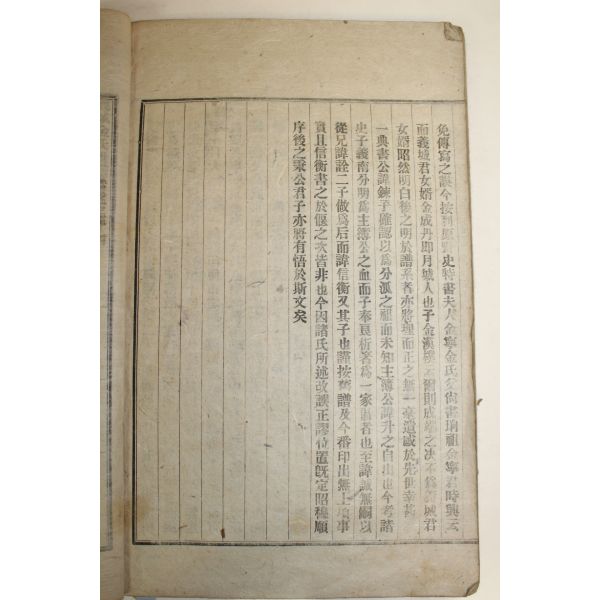 免傳寫之誤今按麗史特書夫人金寧金氏父尙書珦祖金寧君時興云
而義城君女婿金成丹卽月城人也子金漢則成之決不爲義城君
女婿昭然明白移之明於譜系者亦將理而正之無一毫遺憾於先世幸甚
一典書公諱鍊子確認以爲分派之祖而未知主簿公諱升之自出也今考諸
史子義南分明爲主簿公之血而子奉良析著爲一家者也至諱誠無嗣以
從兄諱詮二子做爲后而諱信衡又其子也謹按舊譜及今番印出無上項事
實且信衡書之於偃之次皆非也今因諸氏所述改誤正謬位置旣定昭穆順
序後之秉公君子亦將有悟於斯文矣